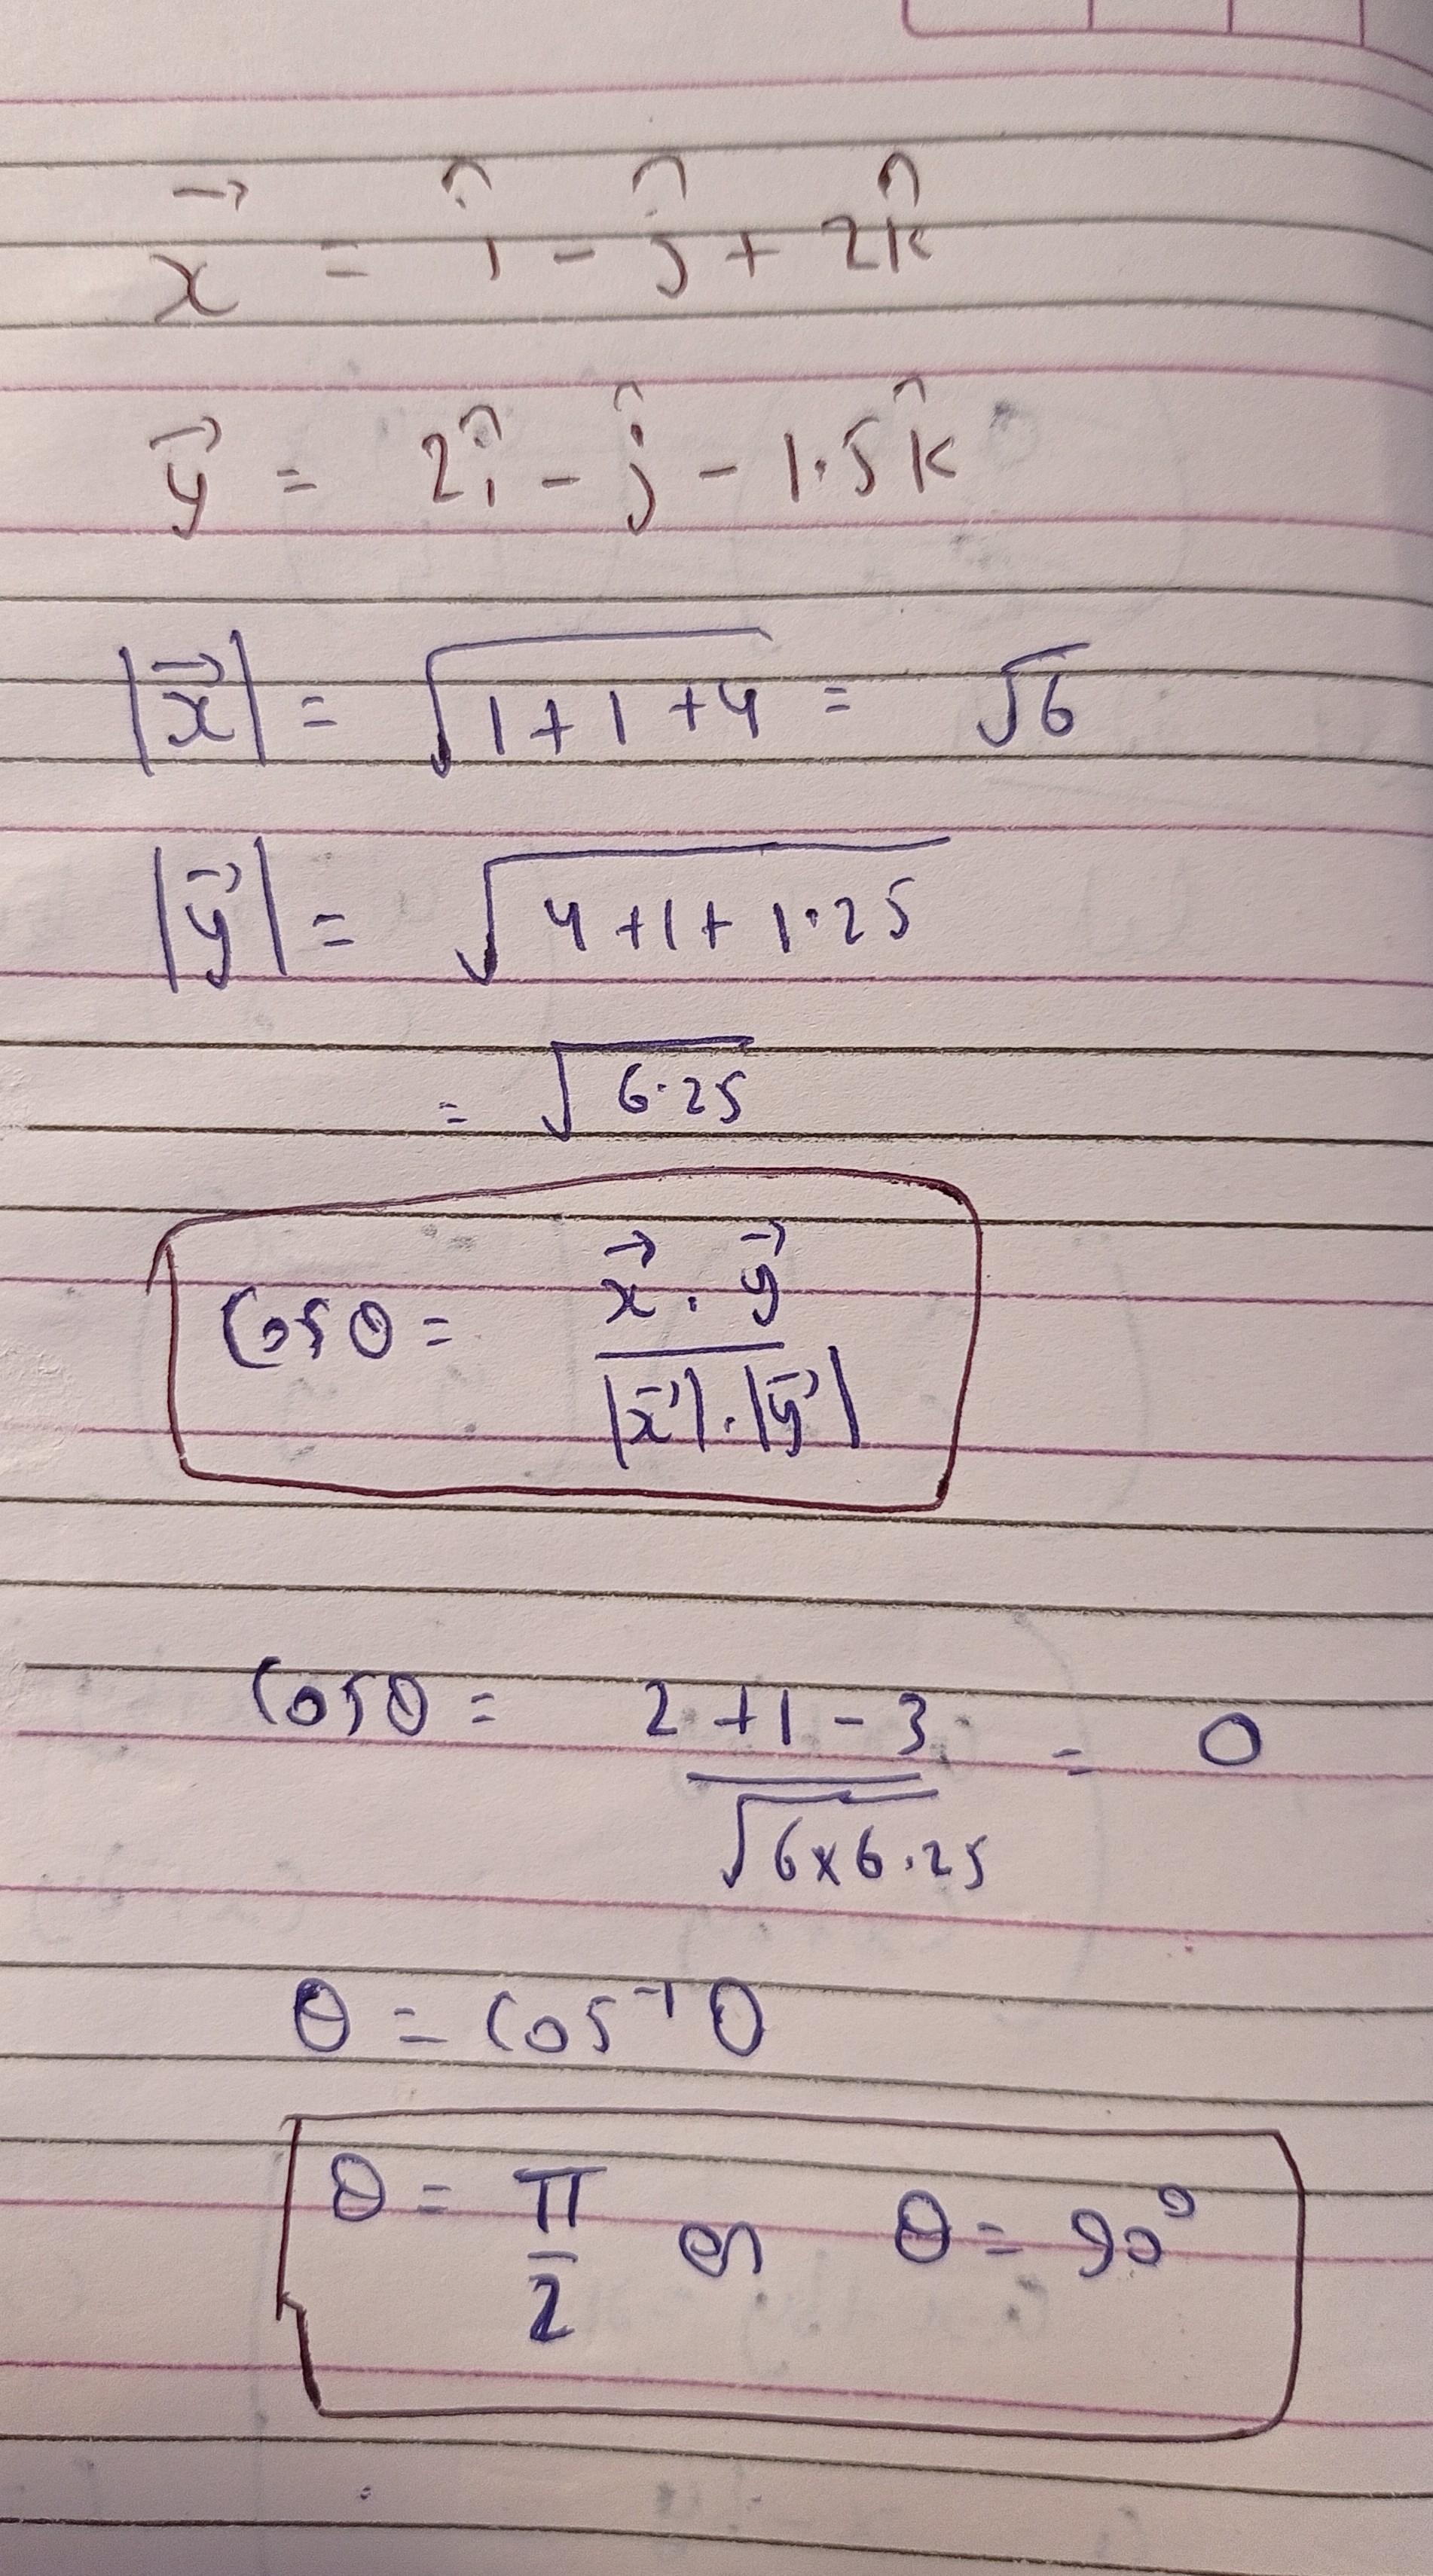 x⃗ = î - ĵ + 2k̂
y⃗ = 2î - ĵ - 1.5k̂
|x⃗| = √(1+1+4) = √6
|y⃗| = √(4+1+1.25)
= √(6.25)
Cosθ = (x⃗ . y⃗)/(|x⃗| . |y⃗|)
Cosθ = (2+1-3)/√(6×6.25) = 0
θ = Cos⁻¹ 0
θ = π/2 or θ = 90°